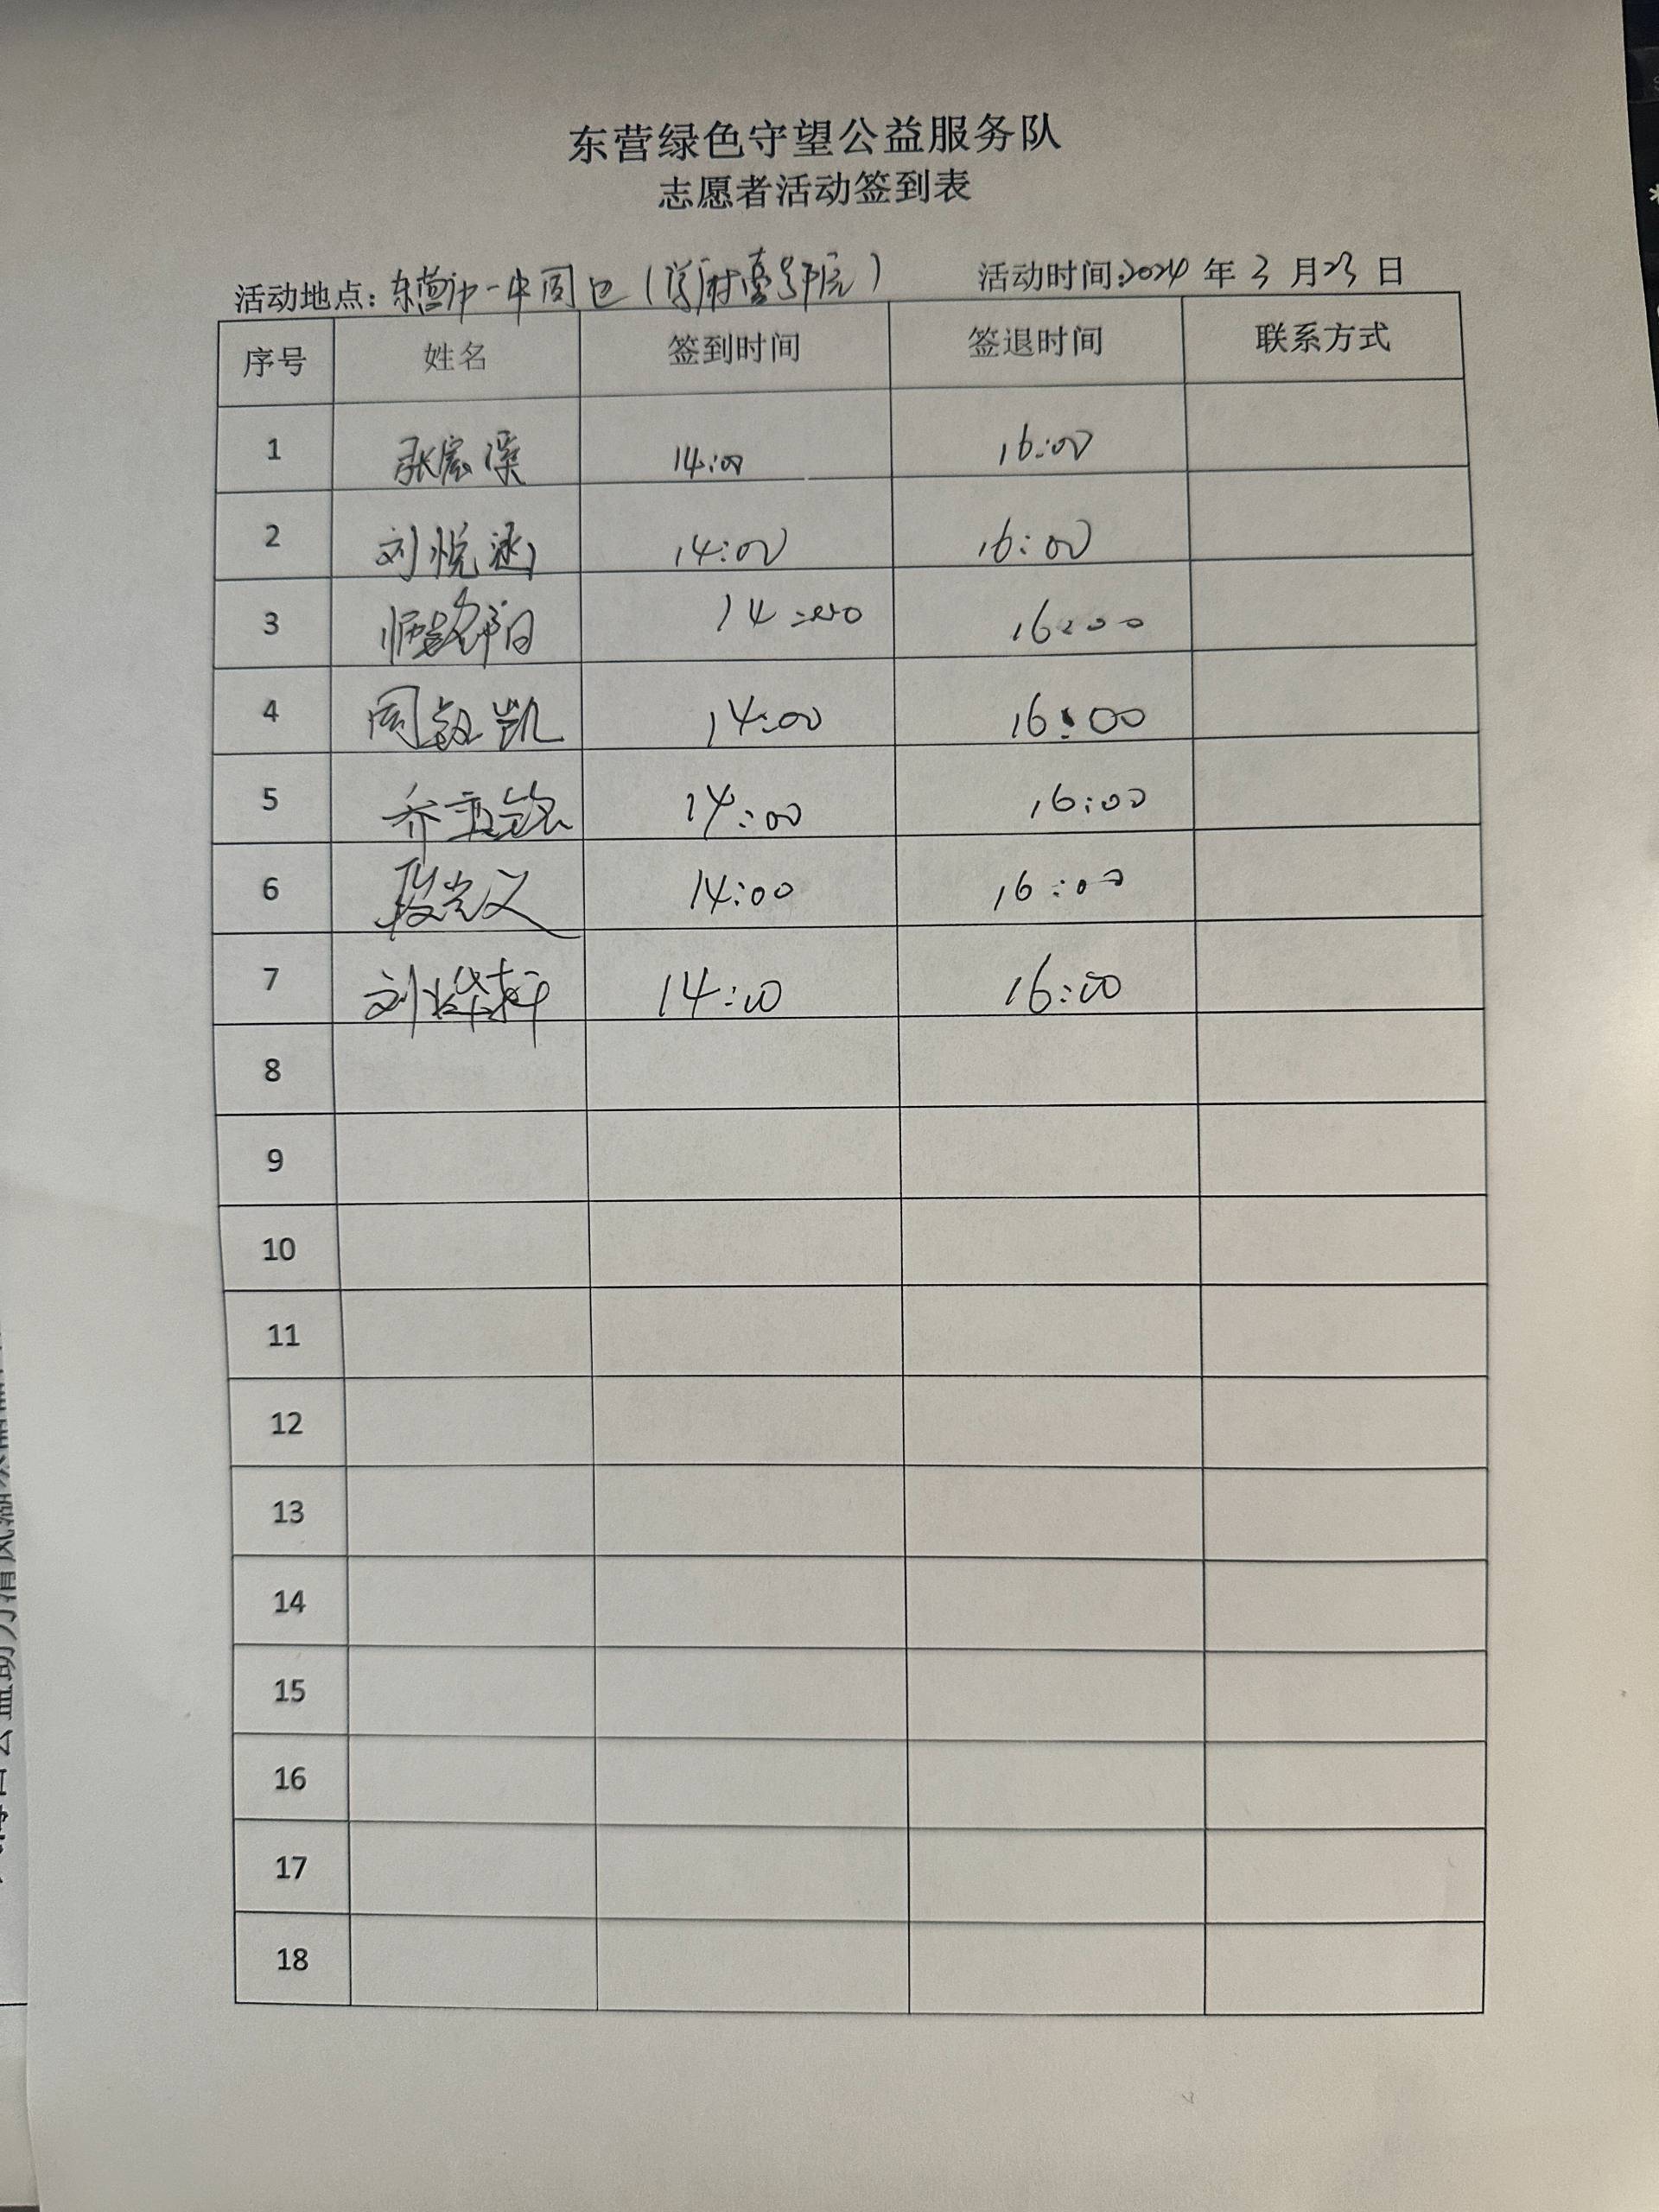 东营绿色守望公益服务队
志愿者活动签到表
活动地点：东营市一中周边（学府壹号院） 活动时间：2024 年 3 月 23 日
序号 姓名 签到时间 签退时间 联系方式
1 张宸深 14:00 16:00
2 刘悦涵 14:00 16:00
3 14:00 16:00
4 周毅凯 14:00 16:00
5 乔玉铭 14:00 16:00
6 段岂义 14:00 16:00
7 刘烨轩 14:00 16:00
8
9
10
11
12
13
14
15
16
17
18